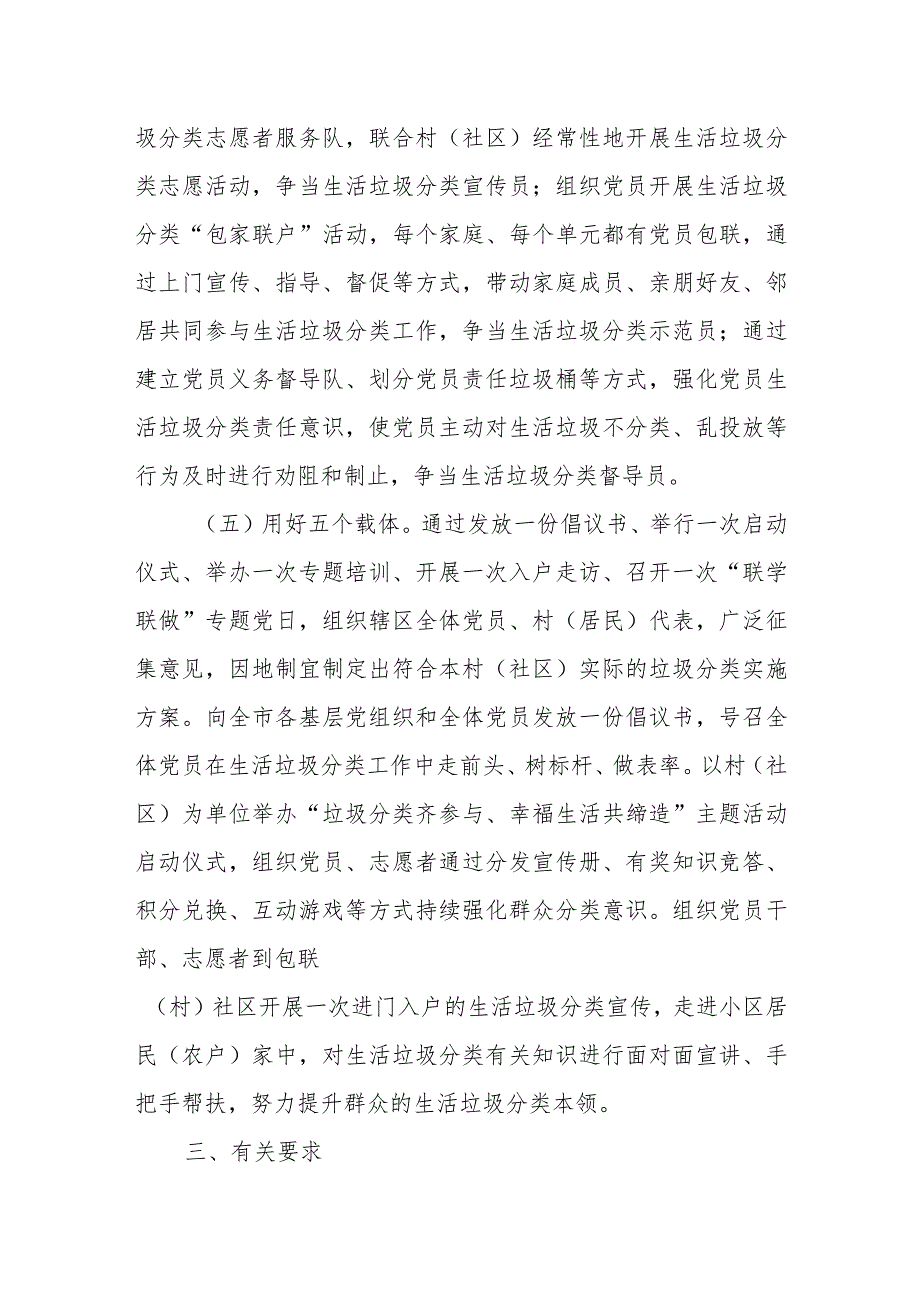 圾分类志愿者服务队，联合村（社区）经常性地开展生活垃圾分
类志愿活动，争当生活垃圾分类宣传员；组织党员开展生活垃圾
分类“包家联户”活动，每个家庭、每个单元都有党员包联，通
过上门宣传、指导、督促等方式，带动家庭成员、亲朋好友、邻
居共同参与生活垃圾分类工作，争当生活垃圾分类示范员；通过
建立党员义务督导队、划分党员责任垃圾桶等方式，强化党员生
活垃圾分类责任意识，使党员主动对生活垃圾不分类、乱投放等
行为及时进行劝阻和制止，争当生活垃圾分类督导员。
（五）用好五个载体。通过发放一份倡议书、举行一次启动
仪式、举办一次专题培训、开展一次入户走访、召开一次“联学
联做”专题党日，组织辖区全体党员、村（居民）代表，广泛征
集意见，因地制宜制定出符合本村（社区）实际的垃圾分类实施
方案。向全市各基层党组织和全体党员发放一份倡议书，号召全
体党员在生活垃圾分类工作中走前头、树标杆、做表率。以村（社
区）为单位举办“垃圾分类齐参与、幸福生活共缔造”主题活动
启动仪式，组织党员、志愿者通过分发宣传册、有奖知识竞答、
积分兑换、互动游戏等方式持续强化群众分类意识。组织党员干
部、志愿者到包联
（村）社区开展一次进门入户的生活垃圾分类宣传，走进小区居
民（农户）家中，对生活垃圾分类有关知识进行面对面宣讲、手
把手帮扶，努力提升群众的生活垃圾分类本领。
三、有关要求